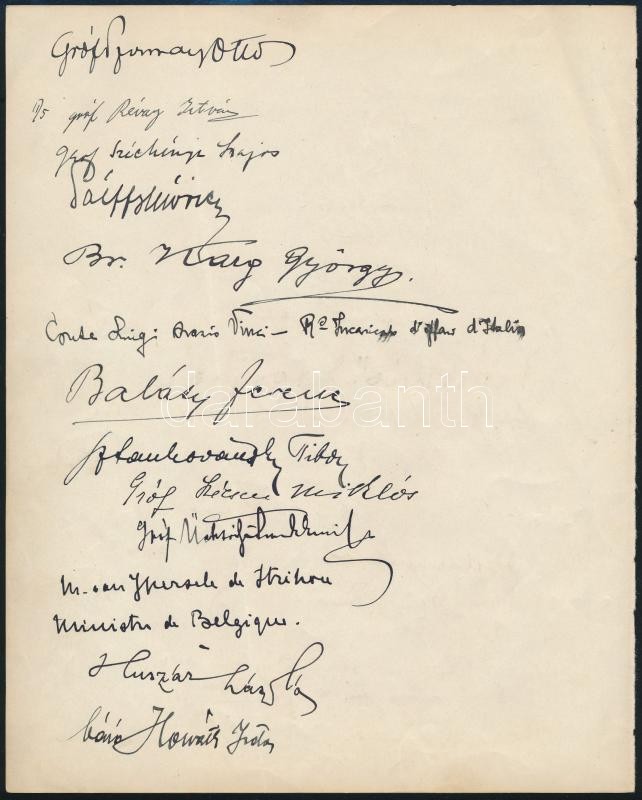 Gróf Szirmay Ottó
gróf Révay István
gróf Széchényi Lajos
Br. Karg György.
Conte Luigi Orazio Vinci – Rº Incaricato d'affari d'Italia
Balásy Ferenc
darabanth
Sztankovánszky Tibor
Gróf Szécsen Miklós
Gróf
M. van Ypersele de Strihou
Ministre de Belgique.
Huszár László
báró Horváth